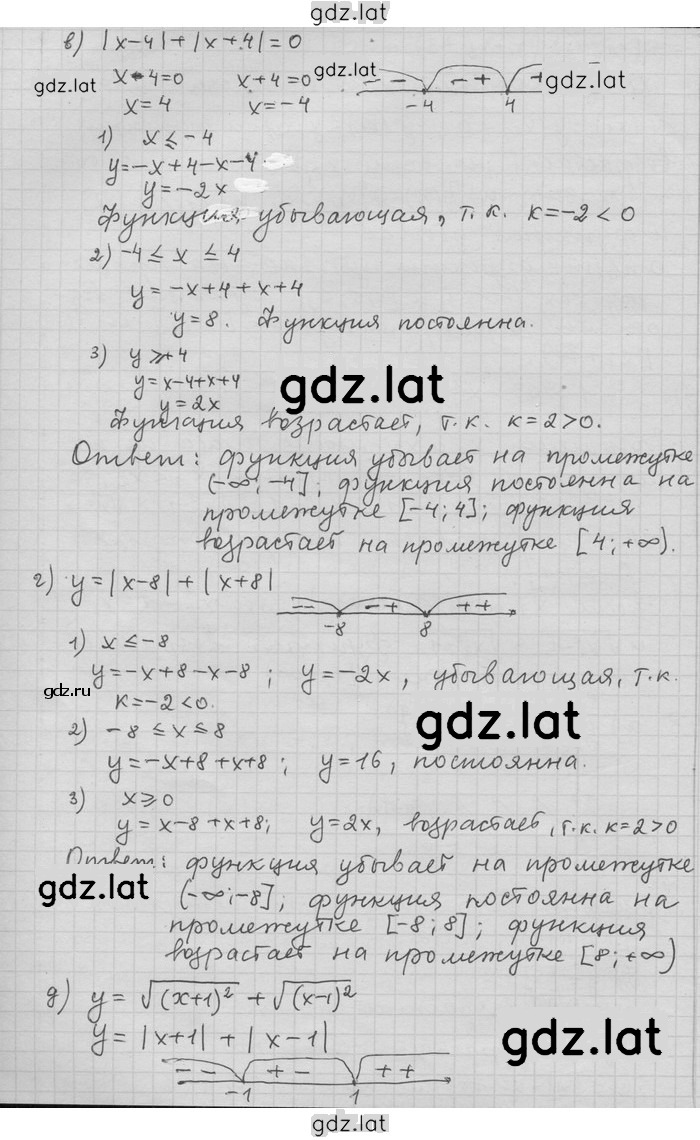 gdz.lat
в) |x-4|+|x+4|=0
gdz.lat
x-4=0 x+4=0
gdz.lat
- - - + +
gdz.lat
x=4 x=-4
-4 4
1) x ≤ -4
y=-x+4-x-4
y=-2x
Функция убывающая, т.к. k=-2<0
2) -4 ≤ x ≤ 4
y=-x+4+x+4
y=8. Функция постоянна.
3) y ≥ 4
y=x-4+x+4
gdz.lat
y=2x
Функция возрастает, т.к. k=2>0.
Ответ: функция убывает на промежутке
(-∞;-4]; функция постоянна на
промежутке [-4;4]; функция
возрастает на промежутке [4;+∞).
г) y=|x-8|+|x+8|
- - - + + +
-8 8
1) x ≤ -8
y=-x+8-x-8; y=-2x, убывающая, т.к.
gdz.ru
k=-2<0.
gdz.lat
2) -8 ≤ x ≤ 8
y=-x+8+x+8; y=16, постоянна.
3) x ≥ 0
y=x-8+x+8; y=2x, возрастает, т.к. k=2>0
Ответ: функция убывает на промежутке
gdz.lat
(-∞;-8]; функция постоянна на
промежутке [-8;8]; функция
возрастает на промежутке [8;+∞)
д) y=√(x+1)² + √(x-1)²
gdz.lat
y=|x+1|+|x-1|
- - + - + +
-1 1
gdz.lat